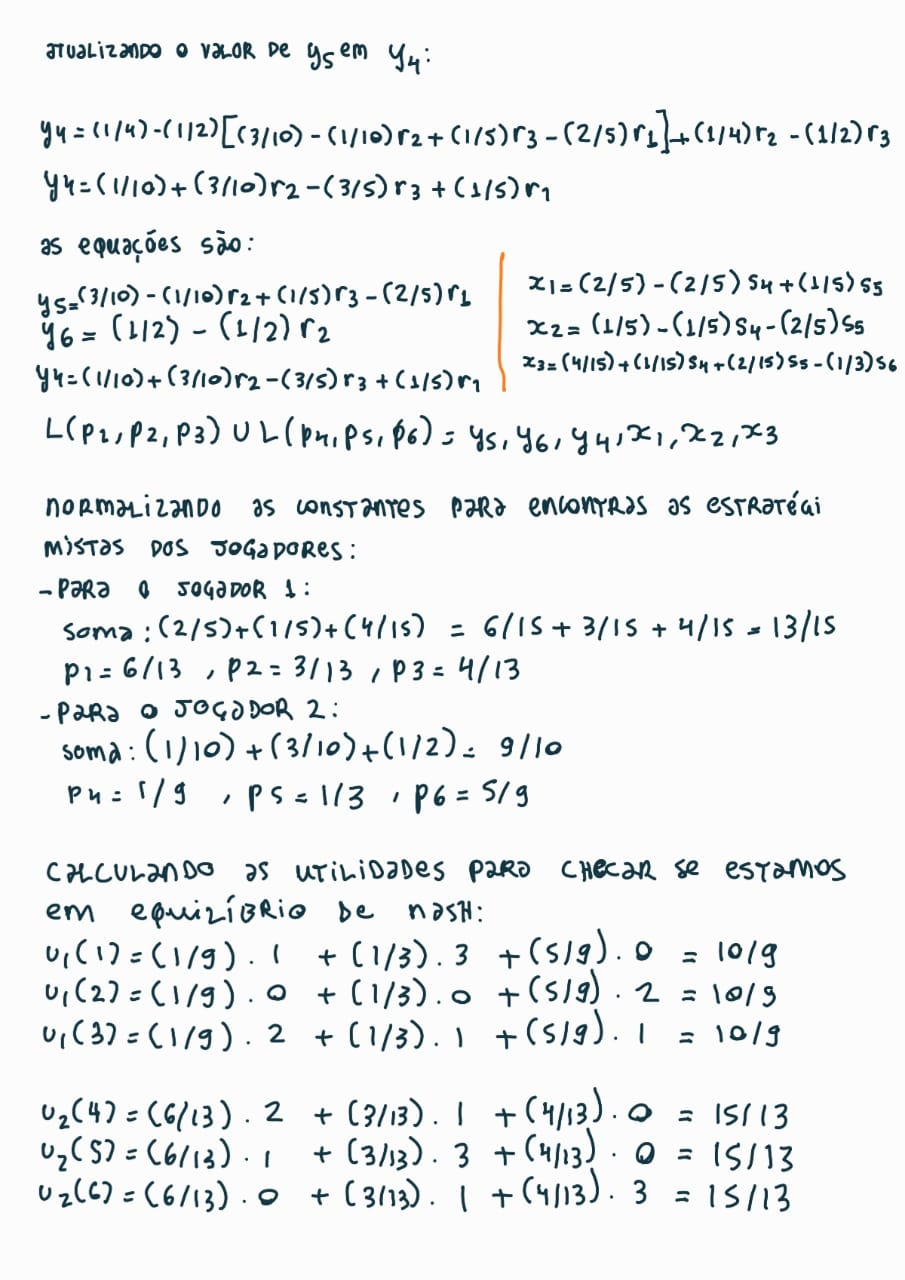 atualizando o valor de y5 em y4:
y4 = (1/4) - (1/2)[(3/10) - (1/10)r2 + (1/5)r3 - (2/5)r1] + (1/4)r2 - (1/2)r3
y4 = (1/10) + (3/10)r2 - (3/5)r3 + (1/5)r1
as equações são:
y5 = (3/10) - (1/10)r2 + (1/5)r3 - (2/5)r1
y6 = (1/2) - (1/2)r2
y4 = (1/10) + (3/10)r2 - (3/5)r3 + (1/5)r1
x1 = (2/5) - (2/5)s4 + (1/5)s5
x2 = (1/5) - (1/5)s4 - (2/5)s5
x3 = (4/15) + (1/15)s4 + (2/15)s5 - (1/3)s6
L(p1, p2, p3) U L(p4, p5, p6) = y5, y6, y4, x1, x2, x3
normalizando as constantes para encontras as estratégi
mistas dos jogadores:
- para o jogador 1:
soma: (2/5)+(1/5)+(4/15) = 6/15 + 3/15 + 4/15 = 13/15
p1 = 6/13 , p2 = 3/13 , p3 = 4/13
- para o jogador 2:
soma: (1/10) + (3/10) + (1/2) = 9/10
p4 = 1/9 , p5 = 1/3 , p6 = 5/9
calculando as utilidades para checar se estamos
em equilíbrio de nash:
u1(1) = (1/9) . 1 + (1/3) . 3 + (5/9) . 0 = 10/9
u1(2) = (1/9) . 0 + (1/3) . 0 + (5/9) . 2 = 10/9
u1(3) = (1/9) . 2 + (1/3) . 1 + (5/9) . 1 = 10/9
u2(4) = (6/13) . 2 + (3/13) . 1 + (4/13) . 0 = 15/13
u2(5) = (6/13) . 1 + (3/13) . 3 + (4/13) . 0 = 15/13
u2(6) = (6/13) . 0 + (3/13) . 1 + (4/13) . 3 = 15/13